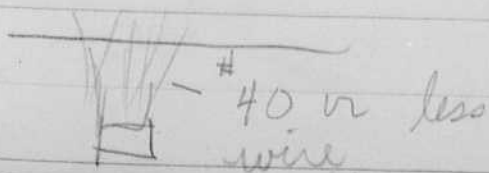 #
40 or less
wire